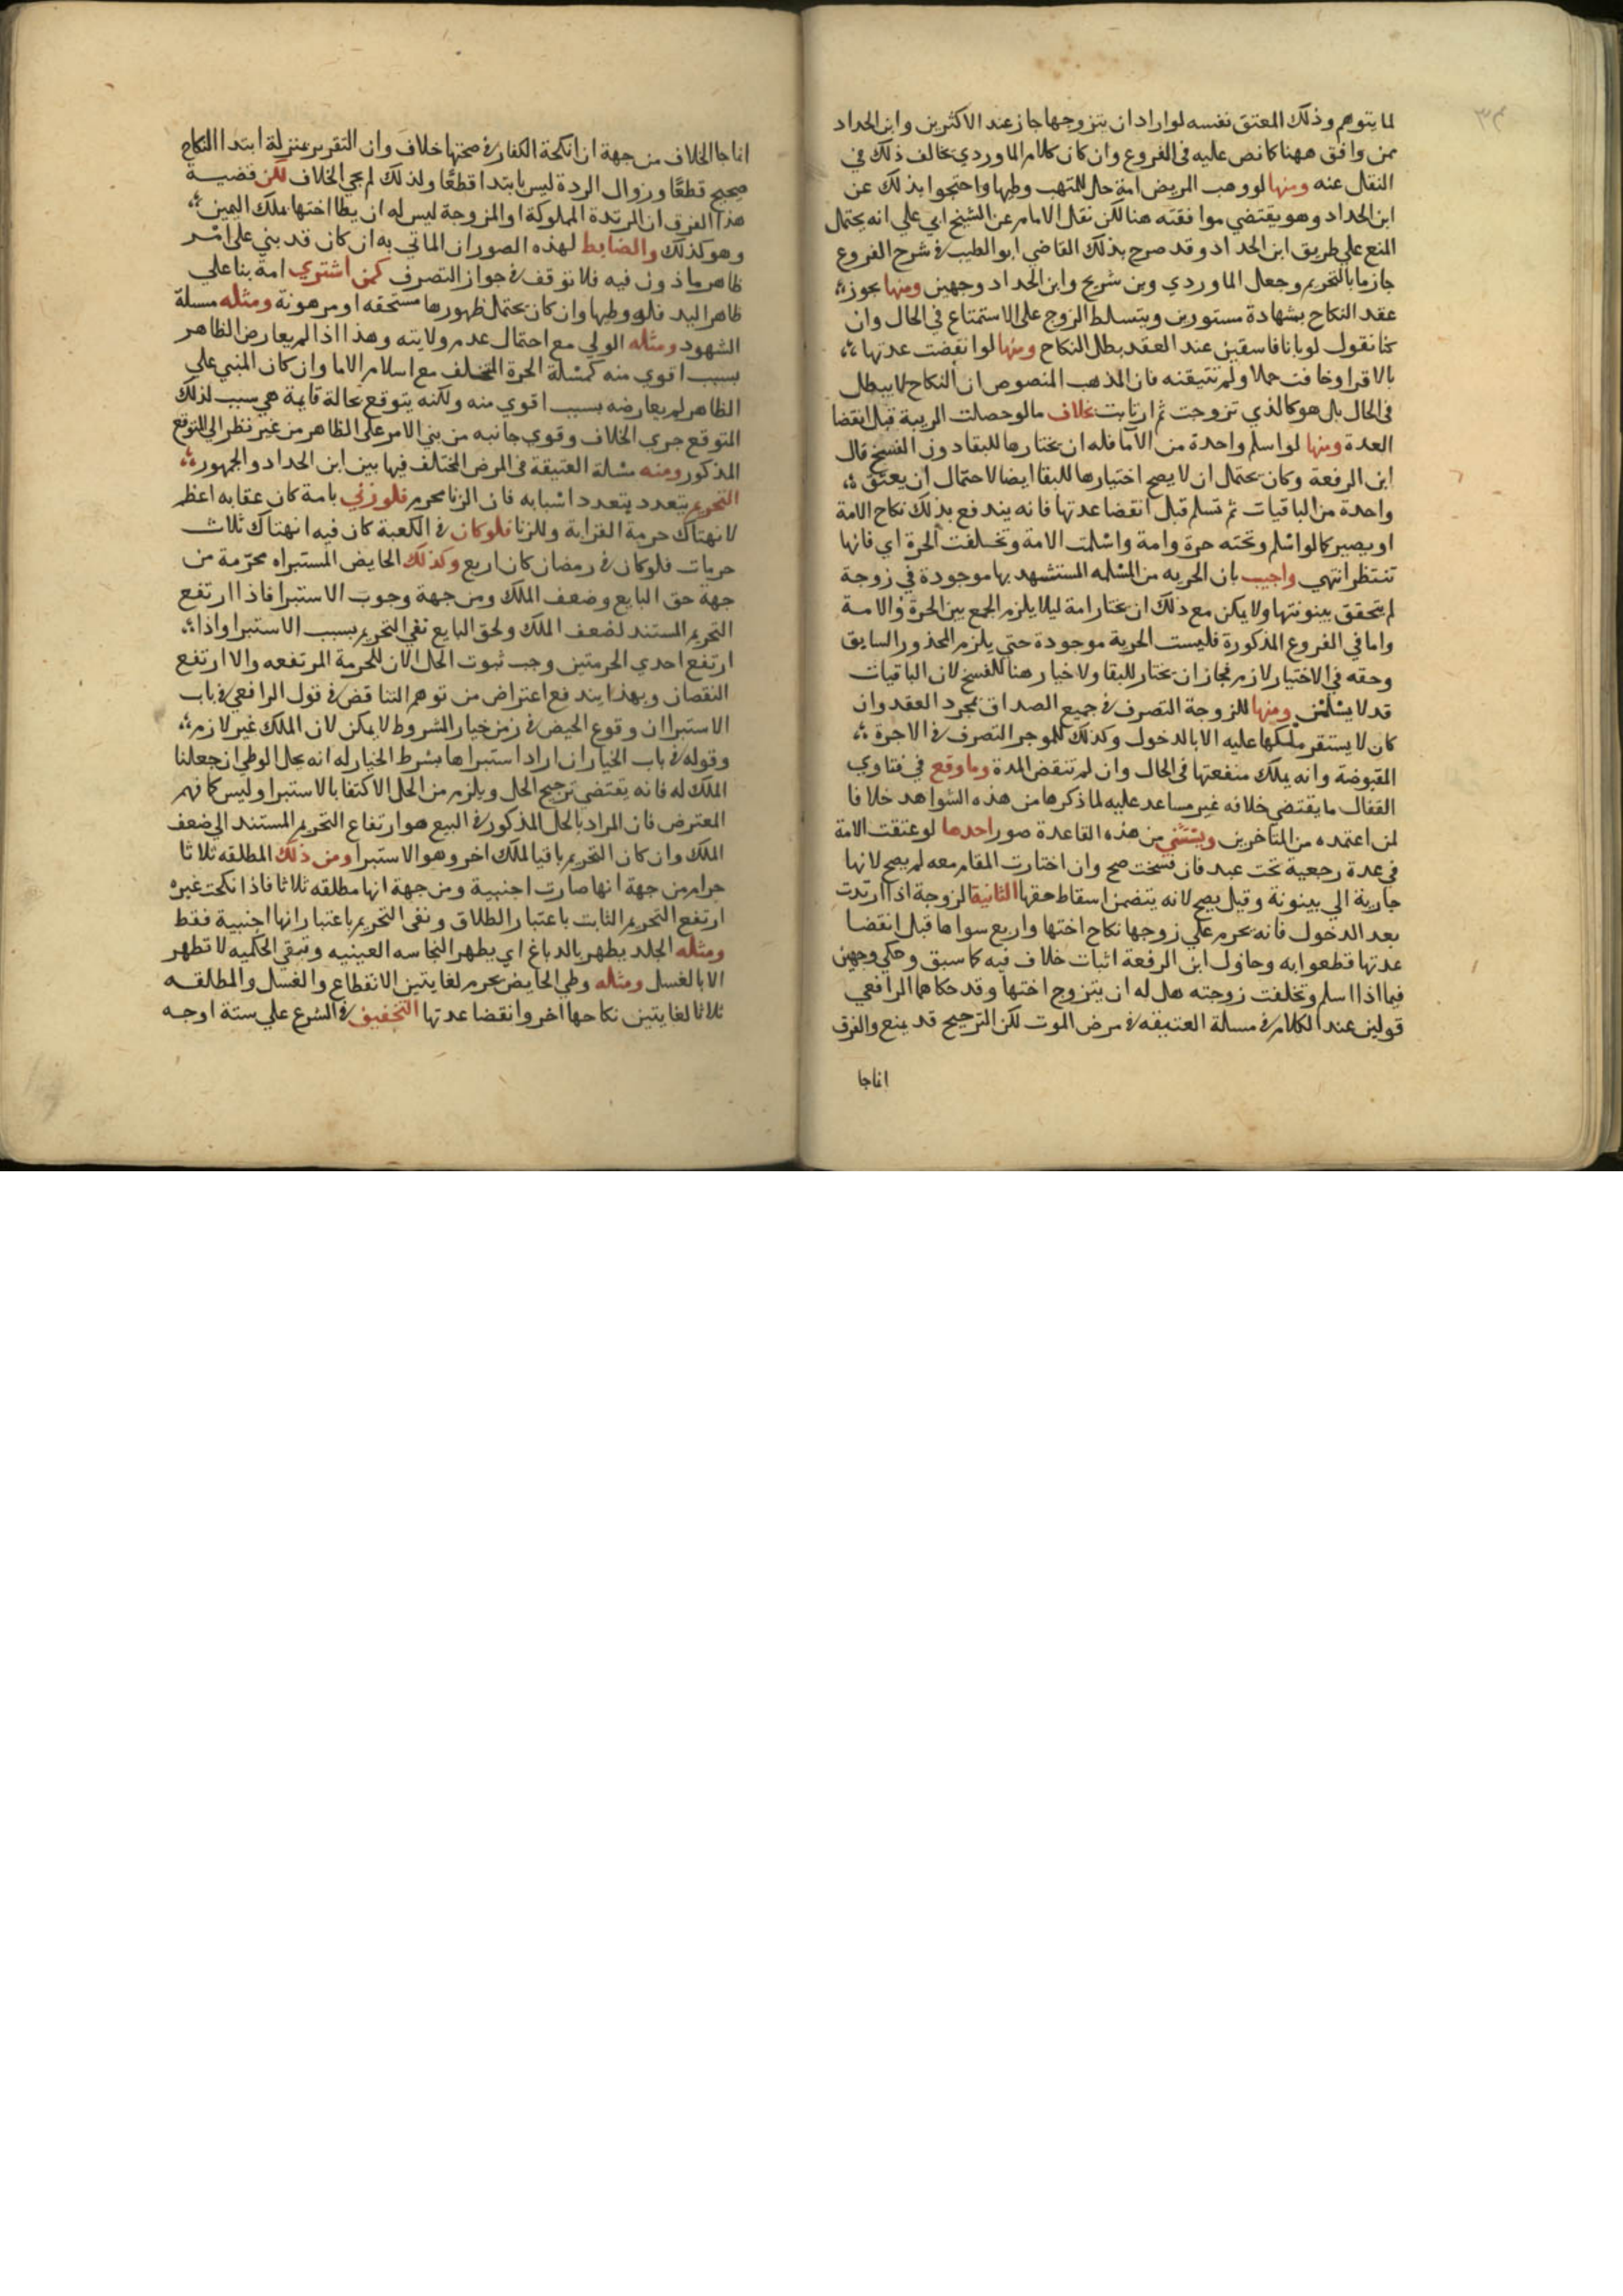 لما يتوهم وذلك المعتق نفسه لو اراد ان يتزوجها جاز عند الاكثرين وابن الحداد
ممن وافق ههنا كما نص عليه في الفروع وان كان كلام الماوردي يخالف ذلك في
النقل عنه ومنها لو وهب المريض امة حل للمتهب وطيها واحتجوا بذلك عن
ابن الحداد وهو يقتضي موافقته هنا لكن نقل الامام عن الشيخ ابي علي انه يحتمل
المنع علي طريق ابن الحداد وقد صرح بذلك القاضي ابو الطيب في شرح الفروع
جازما بالتحريم وجعل الماوردي وبن شريح وابن الحداد وجهين ومنها يجوز
عقد النكاح بشهادة مستورين ويتسلط الزوج علي الاستمتاع في الحال وان
كنا نقول لو بانا فاسقين عند العقد بطل النكاح ومنها لو انقضت عدتها
بالاقرا وخافت حملا ولم تتيقنه فان المذهب المنصوص ان النكاح لا يبطل
في الحال بل هو كالذي تزوجت ثم ارتابت بخلاف ما لو حصلت الريبة قبل انقضا
العدة ومنها لو اسلم واحدة من الاما فله ان يختارها للبقا دون الفسخ قال
ابن الرفعة وكان يحتمل ان لا يصح اختيارها للبقا ايضا لاحتمال ان يعتق
واحدة من الباقيات ثم تسلم قبل انقضا عدتها فانه يندفع بذلك نكاح الامة
او يصير كما لو اسلم وتحته حرة وامة واسلمت الامة وتخلفت الحرة اي فانها
تنتظر انتهي واجيب بان الحريه من المسلمه المستشهد بها موجودة في زوجة
لم يتحقق بينونتها ولا يمكن مع ذلك ان يختار امة ليلا يلزم الجمع بين الحرة والامة
واما في الفروع المذكورة فليست الحرية موجودة حتي يلزم المحذور السابق
وحقه في الاختيار لازم فجاز ان يختار للبقا ولا خيار هنا للفسخ لان الباقيات
قد لا يسلمن ومنها للزوجة التصرف في جميع الصداق بمجرد العقد وان
كان لا يستقر ملكها عليه الا بالدخول وكذلك للموجر التصرف في الاجرة
المقبوضة وانه يملك منفعتها في الحال وان لم تنقض المدة وما وقع في فتاوي
القفال ما يقتضي خلافه غير مساعد عليه لما ذكرها من هذه الشواهد خلافا
لمن اعتمده من المتاخرين ويستثني من هذه القاعدة صور احدها لو عتقت الامة
في عدة رجعية تحت عبد فان فسخت صح وان اختارت المقام معه لم يصح لانها
جارية الي بينونة وقيل يصح لانه يتضمن اسقاط حقها الثانية الزوجة اذا ارتدت
بعد الدخول فانه يحرم علي زوجها نكاح اختها واربع سواها قبل انقضا
عدتها قطعوا به وحاول ابن الرفعة اثبات خلاف فيه كما سبق وحكي وجهين
فيما اذا اسلم وتخلفت زوجته هل له ان يتزوج اختها وقد حكاهما الرافعي
قولين عند الكلام في مسلة العتيقه في مرض الموت لكن الترجيح قد يمنع والفرق
انما جا
انما جا الخلاف من جهة ان انكحة الكفار في صحتها خلاف وان التقرير بمنزلة ابتدا النكاح
صحيح قطعا وزوال الردة ليس بابتدا قطعا ولذلك لم يجي الخلاف لكن قضية
هذا الفرق ان المرتدة المملوكة او المزوجة ليس له ان يطا اختها بملك اليمين
وهو كذلك والضابط لهذه الصور ان الماتي به ان كان قد بني علي امر
ظاهر ماذون فيه فلا توقف في جواز التصرف كمن اشتري امة بنا علي
ظاهر اليد فله وطيها وان كان يحتمل ظهورها مستحقه او مرهونة ومثله مسلة
الشهود ومثله الولي مع احتمال عدم ولايته وهذا اذا لم يعارض الظاهر
بسبب اقوي منه كمسلة الحرة التخلف مع اسلام الاما وان كان المبني علي
الظاهر لم يعارضه بسبب اقوي منه ولكنه يتوقع بحالة قايمة هي سبب لذلك
المتوقع جري الخلاف وقوي جانبه من بني الامر علي الظاهر من غير نظر الي التوقع
المذكور ومنه مسلة العتيقة في المرض المختلف فيها بين ابن الحداد والجمهور
التحريم يتعدد بتعدد اسبابه فان الزنا محرم فلو زني بامة كان عقابه اعظم
لانهتاك حرمة القرابة وللزنا فلو كان في الكعبة كان فيه انهتاك ثلاث
حرمات فلو كان في رمضان كان اربع وكذلك الحايض المستبراه محرمة من
جهة حق البايع وضعف الملك ومن جهة وجوب الاستبرا فاذا ارتفع
التحريم المستند لضعف الملك ولحق البايع نفي التحريم بسبب الاستبرا واذا
ارتفع احدي الحرمتين وجب ثبوت الحل الان للحرمة المرتفعه والا ارتفع
النقصان وبهذا يندفع اعتراض من توهم التناقض في قول الرافعي في باب
الاستبرا ان وقوع الحيض في زمن خيار الشروط لا يمكن لان الملك غير لازم
وقوله في باب الخيار ان اراد استبراها بشرط الخيار له انه يحل الوطي ان جعلنا
الملك له فانه يقتضي ترجيح الحل ويلزم من الحل الاكتفا بالاستبرا وليس كما فهم
المعترض فان المراد بالحل المذكور في البيع هو ارتفاع التحريم المستند الي ضعف
الملك وان كان التحريم باقيا لملك اخر وهو الاستبرا ومن ذلك المطلقه ثلاثا
حرام من جهة انها صارت اجنبية ومن جهة انها مطلقه ثلاثا فاذا نكحت غيره
ارتفع التحريم الثابت باعتبار الطلاق ونفي التحريم باعتبار انها اجنبية فقط
ومثله الجلد يطهر بالدباغ اي يطهر النجاسه العينيه وتبقي الحكميه لا تطهر
الا بالغسل ومثله وطي الحايض يحرم لغايتين الانقطاع والغسل والمطلقه
ثلاثا لغايتين نكاحها اخر وانقضا عدتها التخفيف في الشرع علي ستة اوجه